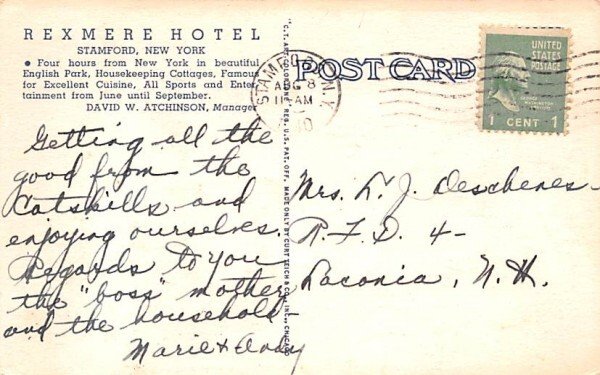 REXMERE HOTEL
STAMFORD, NEW YORK
• Four hours from New York in beautiful
English Park, Housekeeping Cottages, Famous
for Excellent Cuisine, All Sports and Enter-
tainment from June until September.
DAVID W. ATCHINSON, Manager
Getting all the
good from the
Catskills and
enjoying ourselves.
Regards to you
the "boss" mother
and the household-
Marie & Andy
C.T. ART-COLORTONE REG. U.S. PAT. OFF. MADE ONLY BY CURT TEICH & CO., INC., CHICAGO
POST CARD
STAMFORD N.Y.
AUG 8
11 AM
UNITED
STATES
POSTAGE
WASHINGTON
1 CENT 1
Mrs. L. J. Deschenes-
R.F.D. 4-
Laconia, N.H.